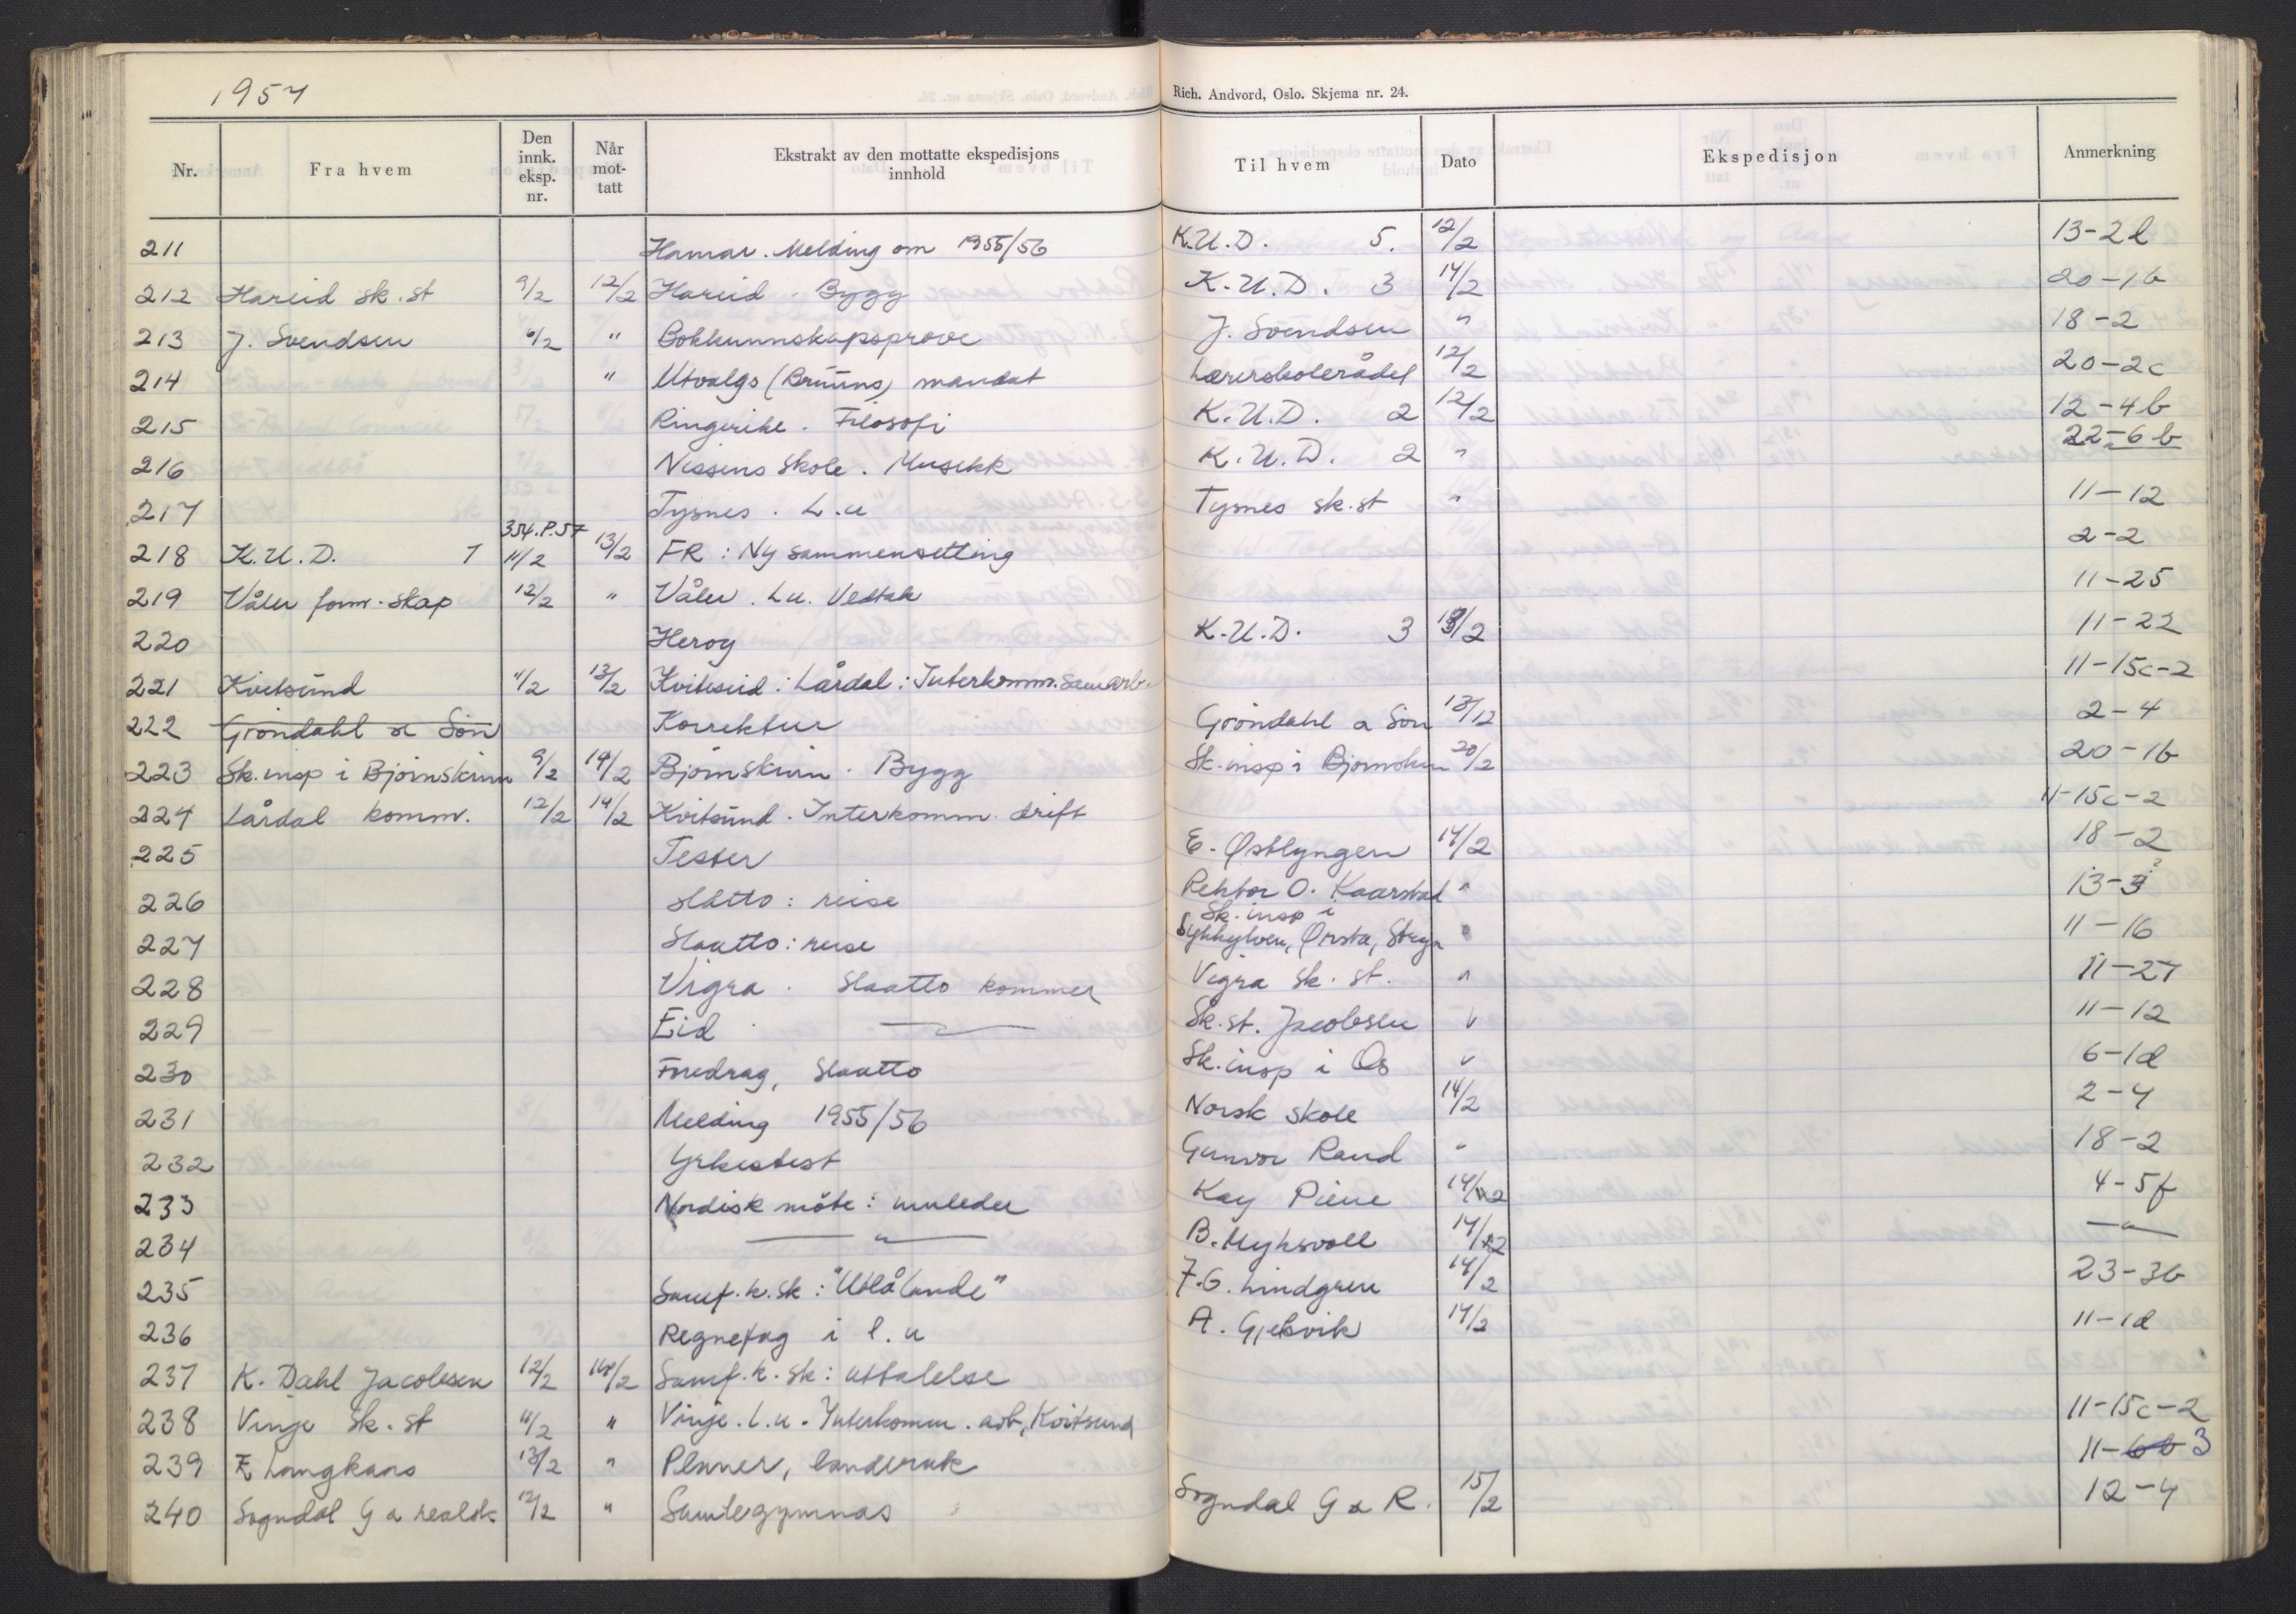 1957
Rich. Andvord, Oslo. Skjema nr. 24.
Nr. Fra hvem Den innk. eksp. nr. Når mot- tatt Ekstrakt av den mottatte ekspedisjons innhold Til hvem Dato Ekspedisjon Anmerkning
211 Hamar. Melding om 1955/56 K.U.D. 5. 12/2 13-2l
212 Hareid sk.st 9/2 12/2 Hareid. Bygg K.U.D. 3 14/2 20-1b
213 J. Svendsen 6/2 " Bokkunnskapsprøve J. Svendsen " 18-2
214 " Utvalgs (Bruuns) mandat Lærerskolerådet 12/2 20-2c
215 Ringerike. Filosofi K.U.D. 2 12/2 12-4b
216 Nissens Skole. Musikk K.U.D. 2 " 22-6b
217 Tysnes. L.u Tysnes sk.st " 11-12
354.P.57
218 K.U.D. 1 11/2 13/2 FR: Ny sammensetting 2-2
219 Våler form.skap 12/2 " Våler. L.u. Vedtak 11-25
220 Herøy K.U.D. 3 /2 11-22
221 Kvitsund 11/2 13/2 Kviteseid: Lårdal: Interkomm. Samarb. 11-15c-2
222 Gröndahl & Sön Korrektur Gröndahl & Sön 13/12 2-4
223 Sk.insp i Bjørnskinn 9/2 14/2 Bjørnskinn. Bygg Sk.insp i Bjørnskinn 20/2 20-1b
224 Lårdal komm. 12/2 14/2 Kvitsund. Interkomm. drift 11-15c-2
225 Tester E. Østlyngen 14/2 18-2
226 Slåtto: reise Rektor O. Kaarstad " 13-3
Sk.insp i
227 Slaatto: reise Sykkylven, Ørsta, Stryn " 11-16
228 Vigra. Slaatto kommer Vigra sk.st. " 11-27
229 Eid — " — Sk.st. Jacobsen " 11-12
230 Foredrag, Slaatto Sk.insp i Os " 6-1d
231 Melding 1955/56 Norsk skole 14/2 2-4
232 Yrkestest Gunvor Rand " 18-2
233 Nordisk möte: innleder Kay Piene 14/2 4-5f
234 — " — B. Myksvoll 14/2 — " —
235 Samf.k.sk: "Utblånde" F.G. Lindgren 14/2 23-3b
236 Regnefag i l.u A. Gjelsvik 14/2 11-1d
237 K. Dahl Jacobsen 12/2 14/2 Samf.k.sk: uttalelse
238 Vinje Sk.st 11/2 " Vinje. L.u. Interkomm. arb, Kvitsund 11-15c-2
239 E Langkaas 13/2 " Planer, landbruk 11-6b 3
240 Sogndal G & realsk 12/2 " Samlegymnas Sogndal G & R. 15/2 12-4